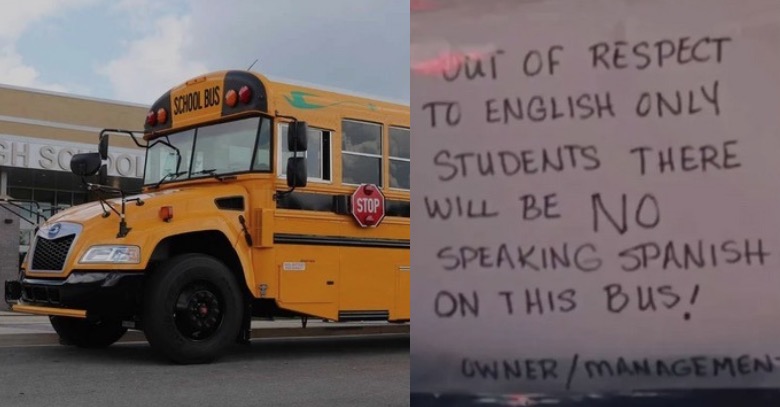 SCHOOL BUS
GH SCHOOL
STOP
OUT OF RESPECT
TO ENGLISH ONLY
STUDENTS THERE
WILL BE NO
SPEAKING SPANISH
ON THIS BUS!
OWNER/MANAGEMEN